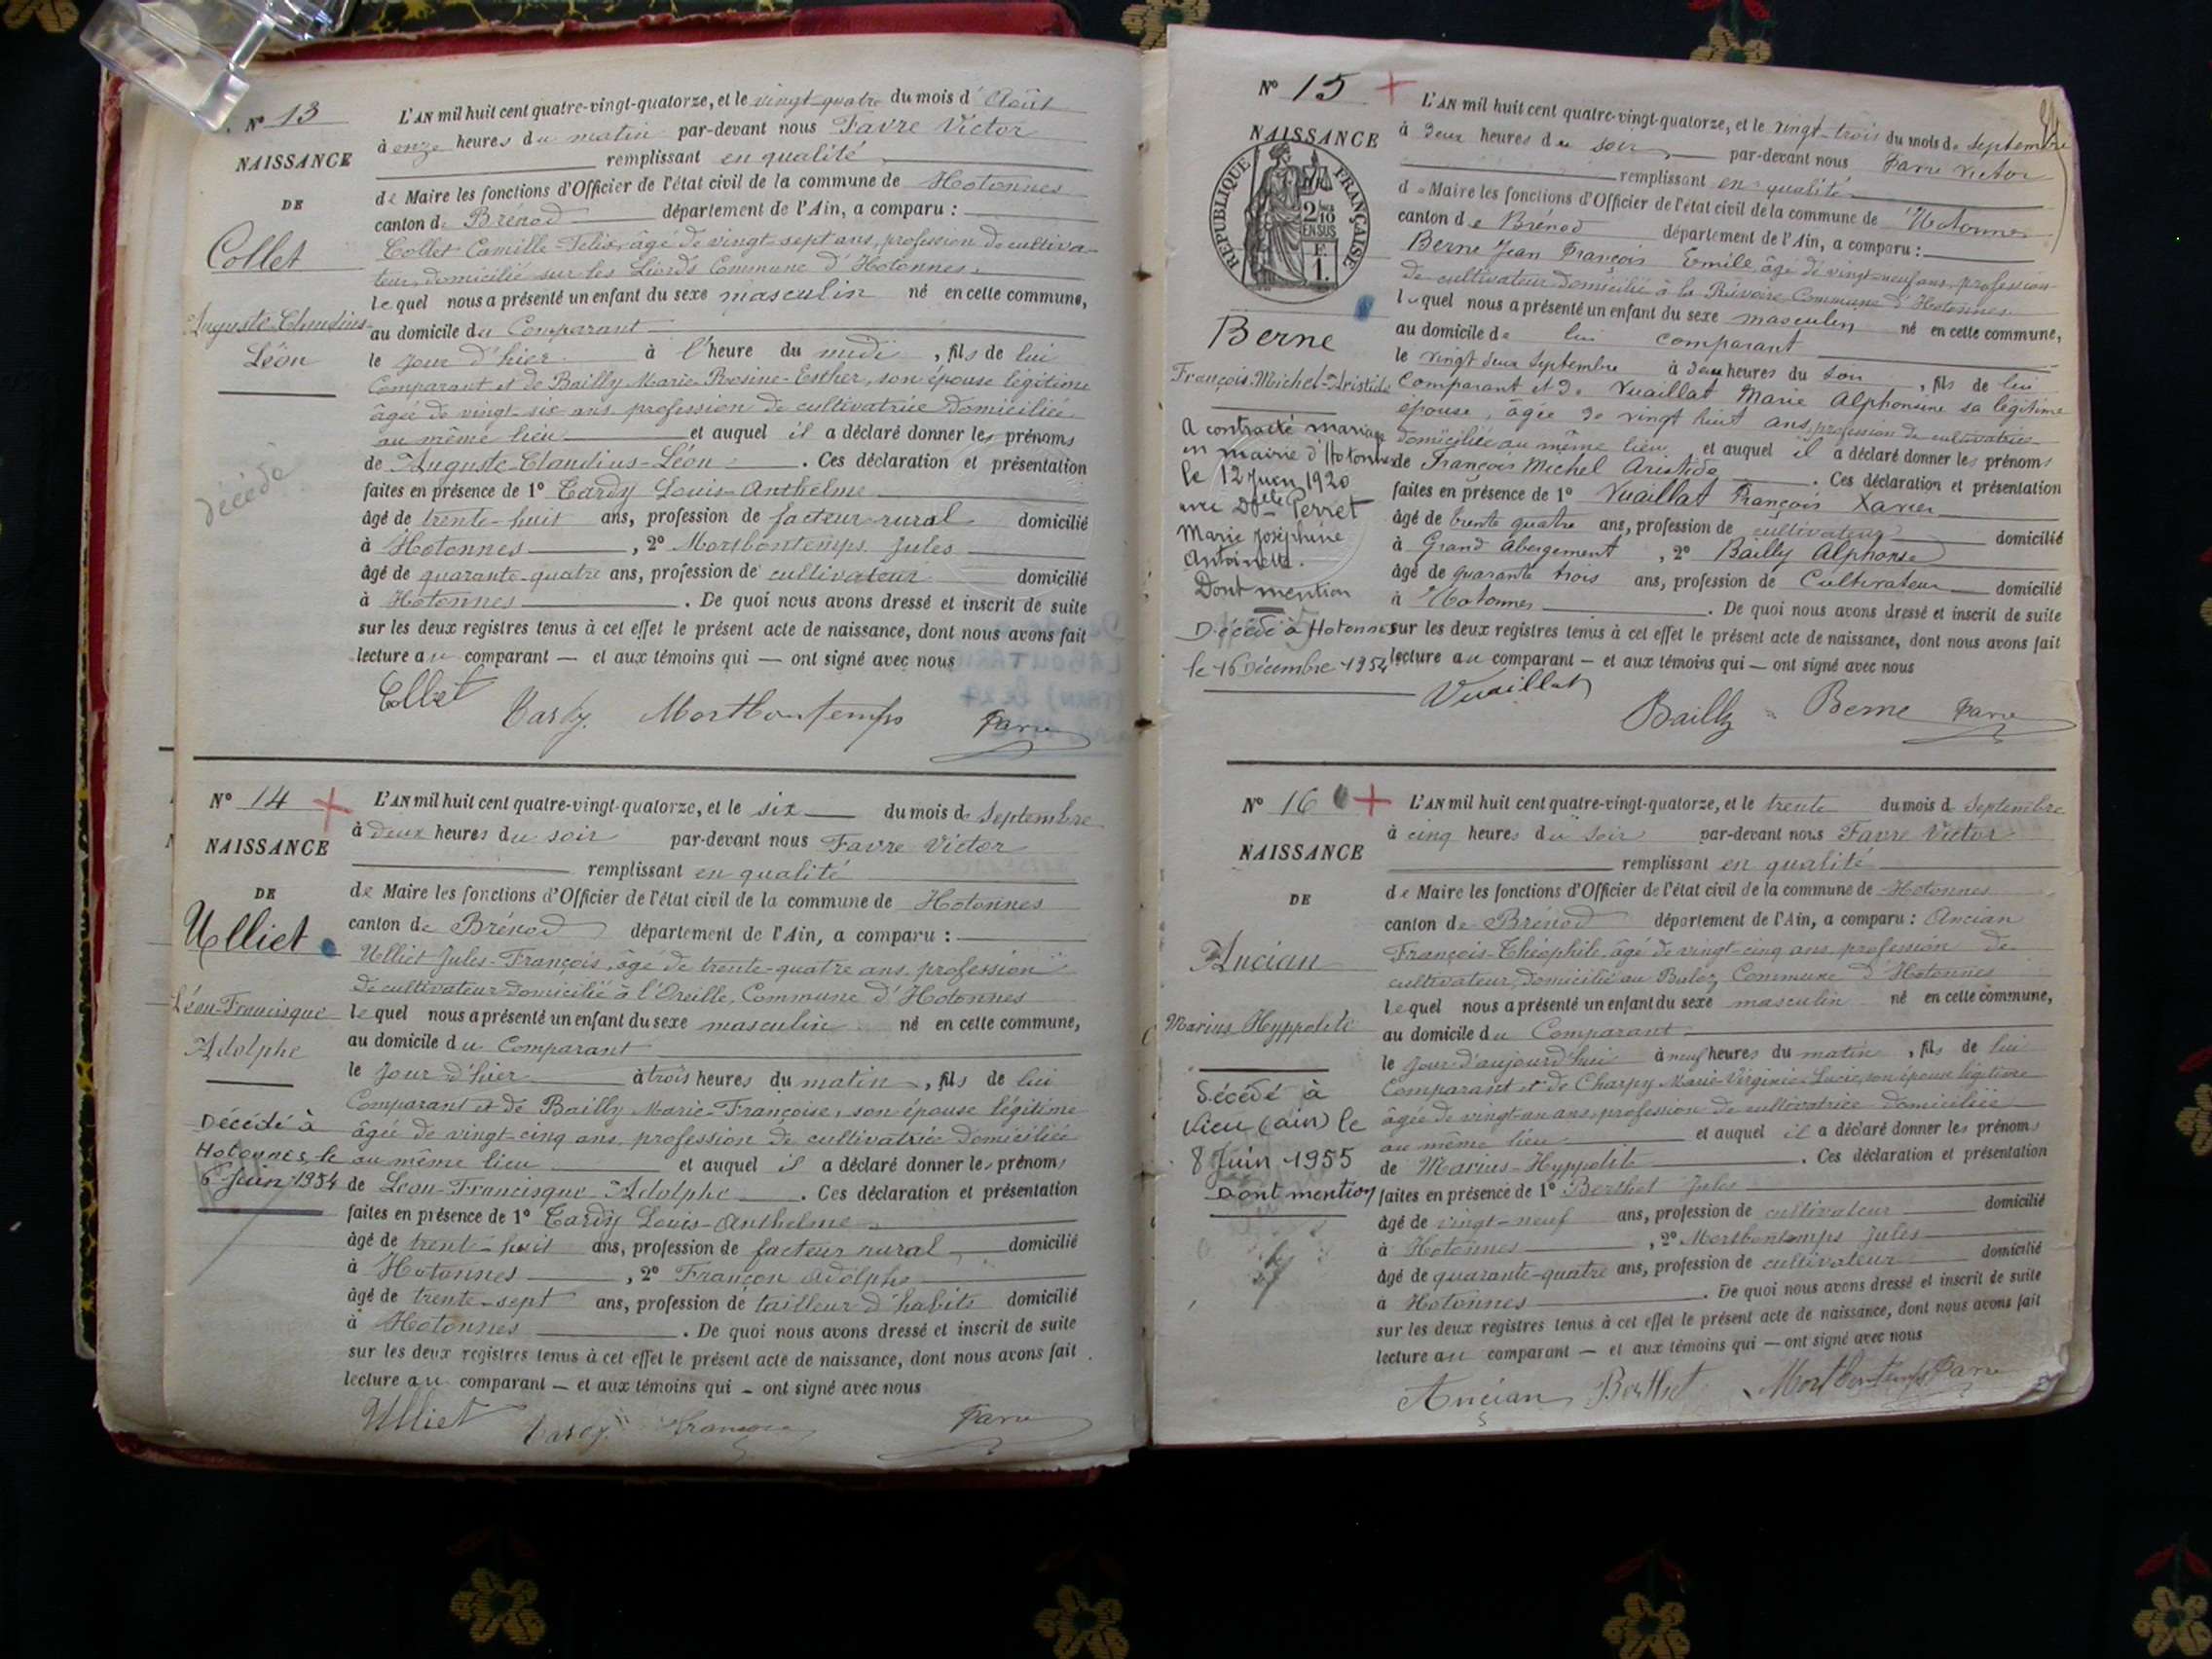 N° 13
NAISSANCE
DE
Collet
Auguste-Claudius-
Léon
décédé
L'AN mil huit cent quatre-vingt-quatorze, et le vingt-quatre du mois d'Août
à onze heures du matin par-devant nous Favre Victor
remplissant en qualité
de Maire les fonctions d'Officier de l'état civil de la commune de Hotonnes
canton de Brénod département de l'Ain, a comparu :
Collet Camille-Félix, âgé de vingt-sept ans, profession de cultiva-
teur, domicilié sur les Liords Commune d'Hotonnes.
lequel nous a présenté un enfant du sexe masculin né en cette commune,
au domicile du Comparant
le jour d'hier à l'heure du midi, fils de lui
Comparant et de Bailly Marie-Rosine-Esther, son épouse légitime
âgée de vingt-six ans profession de cultivatrice domiciliée
au même lieu et auquel il a déclaré donner les prénoms
de Auguste-Claudius-Léon. Ces déclaration et présentation
faites en présence de 1° Tardy Louis-Anthelme
âgé de trente-huit ans, profession de facteur rural domicilié
à Hotonnes, 2° Mortbontemps Jules
âgé de quarante-quatre ans, profession de cultivateur domicilié
à Hotonnes. De quoi nous avons dressé et inscrit de suite
sur les deux registres tenus à cet effet le présent acte de naissance, dont nous avons fait
lecture au comparant — et aux témoins qui — ont signé avec nous
Collet Tardy Mortbontemps Favre
N° 14 +
NAISSANCE
DE
Ulliet
Léon-Francisque
Adolphe
Décédé à
Hotonnes, le
6 Juin 1954
L'AN mil huit cent quatre-vingt-quatorze, et le six du mois de Septembre
à deux heures du soir par-devant nous Favre Victor
remplissant en qualité
de Maire les fonctions d'Officier de l'état civil de la commune de Hotonnes
canton de Brénod département de l'Ain, a comparu :
Ulliet Jules-François, âgé de trente-quatre ans, profession
de cultivateur domicilié à l'Oreille, Commune d'Hotonnes
lequel nous a présenté un enfant du sexe masculin né en cette commune,
au domicile du Comparant
le jour d'hier à trois heures du matin, fils de lui
Comparant et de Bailly Marie-Françoise, son épouse légitime
âgée de vingt-cinq ans, profession de cultivatrice domiciliée
au même lieu et auquel il a déclaré donner les prénoms
de Léon-Francisque-Adolphe. Ces déclaration et présentation
faites en présence de 1° Tardy Louis-Anthelme
âgé de trent-huit ans, profession de facteur rural domicilié
à Hotonnes, 2° Françon Adolphe
âgé de trente-sept ans, profession de tailleur d'habits domicilié
à Hotonnes. De quoi nous avons dressé et inscrit de suite
sur les deux registres tenus à cet effet le présent acte de naissance, dont nous avons fait
lecture au comparant — et aux témoins qui — ont signé avec nous
Ulliet Tardy Françon Favre
N° 15 +
NAISSANCE
REPUBLIQUE FRANÇAISE
2/10 EN SUS
F. 1.
Berne
François-Michel-Aristide
A contracté mariage
en mairie d'Hotonnes
le 12 Juin 1920
avec Dlle Perret
Marie Joséphine
Antoinette.
Dont mention
Décédé à Hotonnes
le 16 Décembre 1954
L'AN mil huit cent quatre-vingt-quatorze, et le vingt-trois du mois de Septembre
à deux heures du soir par-devant nous Favre Victor
remplissant en qualité
de Maire les fonctions d'Officier de l'état civil de la commune de Hotonnes
canton de Brénod département de l'Ain, a comparu :
Berne Jean François Emile âgé de vingt-neuf ans, profession
de cultivateur domicilié à la Révoire Commune d'Hotonnes
lequel nous a présenté un enfant du sexe masculin né en cette commune,
au domicile de lui comparant
le vingt deux Septembre à deux heures du soir, fils de lui
Comparant et de Vuaillat Marie Alphonsine sa légitime
épouse, âgée de vingt huit ans, profession de cultivatrice
domiciliée au même lieu et auquel il a déclaré donner les prénoms
de François Michel Aristide. Ces déclaration et présentation
faites en présence de 1° Vuaillat François Xavier
âgé de trente quatre ans, profession de cultivateur domicilié
à Grand Abergement, 2° Bailly Alphonse
âgé de quarante trois ans, profession de Cultivateur domicilié
à Hotonnes. De quoi nous avons dressé et inscrit de suite
sur les deux registres tenus à cet effet le présent acte de naissance, dont nous avons fait
lecture au comparant — et aux témoins qui — ont signé avec nous
Vuaillat Bailly Berne Favre
N° 16 +
NAISSANCE
DE
Ancian
Marius Hyppolite
Décédé à
Vieu (ain) le
8 Juin 1955
Dont mention
L'AN mil huit cent quatre-vingt-quatorze, et le trente du mois de Septembre
à cinq heures du soir par-devant nous Favre Victor
remplissant en qualité
de Maire les fonctions d'Officier de l'état civil de la commune de Hotonnes
canton de Brénod département de l'Ain, a comparu : Ancian
François-Théophile, âgé de vingt-cinq ans, profession de
cultivateur, domicilié au Buloz, Commune d'Hotonnes
lequel nous a présenté un enfant du sexe masculin né en cette commune,
au domicile du Comparant
le jour d'aujourd'hui à neuf heures du matin, fils de lui
Comparant et de Charpy Marie-Virginie-Lucie, son épouse légitime
âgée de vingt-un ans, profession de cultivatrice domiciliée
au même lieu et auquel il a déclaré donner les prénoms
de Marius-Hyppolite. Ces déclaration et présentation
faites en présence de 1° Berthet Jules
âgé de vingt-neuf ans, profession de cultivateur domicilié
à Hotonnes, 2° Mortbontemps Jules
âgé de quarante-quatre ans, profession de cultivateur domicilié
à Hotonnes. De quoi nous avons dressé et inscrit de suite
sur les deux registres tenus à cet effet le présent acte de naissance, dont nous avons fait
lecture au comparant — et aux témoins qui — ont signé avec nous
Ancian Berthet Mortbontemps Favre